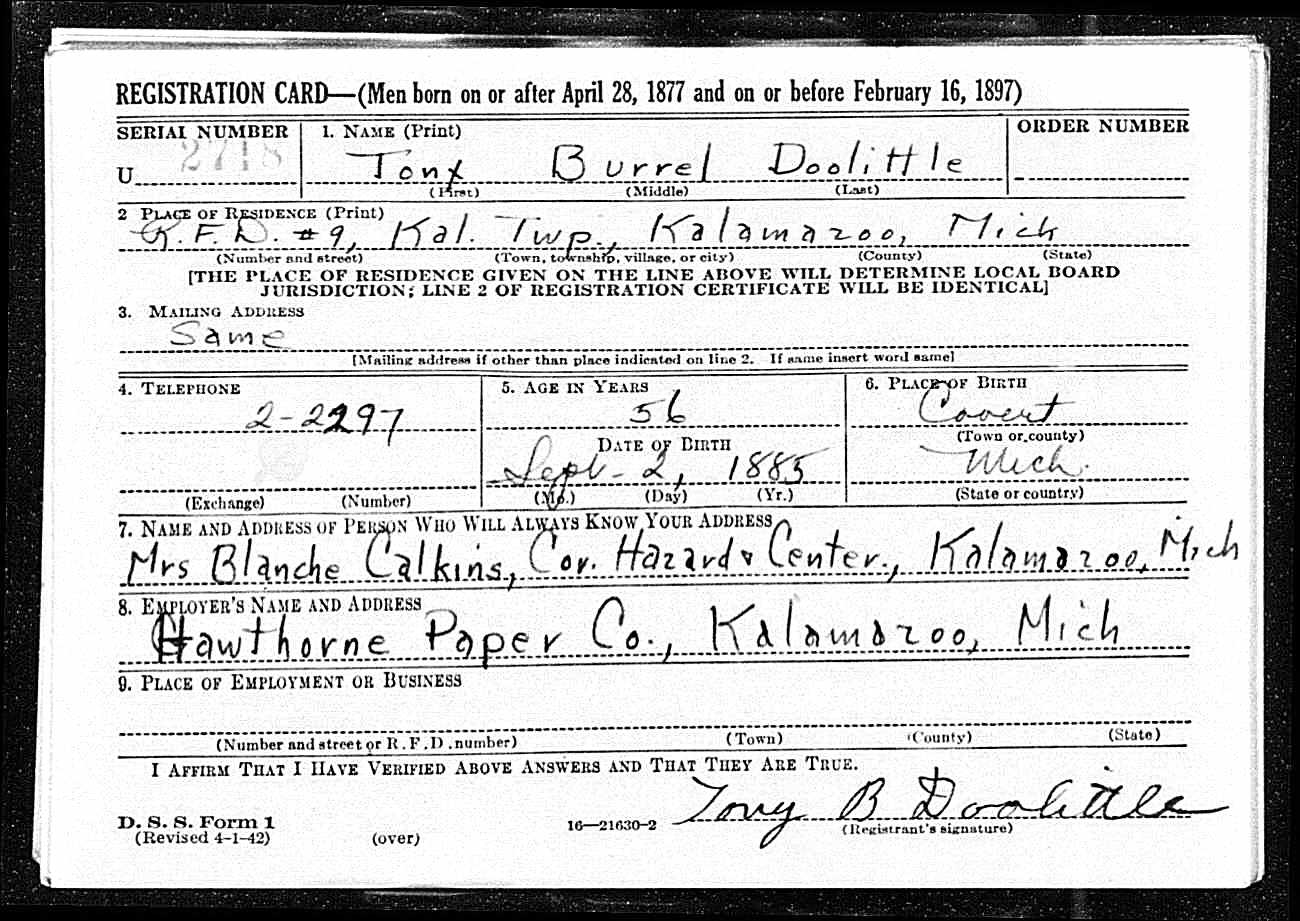 REGISTRATION CARD—(Men born on or after April 28, 1877 and on or before February 16, 1897)
SERIAL NUMBER 1. NAME (Print) ORDER NUMBER
U 2718 Tony Burrel Doolittle
(First) (Middle) (Last)
2 PLACE OF RESIDENCE (Print)
R.F.D. #9, Kal. Twp., Kalamazoo, Mich
(Number and street) (Town, township, village, or city) (County) (State)
[THE PLACE OF RESIDENCE GIVEN ON THE LINE ABOVE WILL DETERMINE LOCAL BOARD
JURISDICTION; LINE 2 OF REGISTRATION CERTIFICATE WILL BE IDENTICAL]
3. MAILING ADDRESS
Same
[Mailing address if other than place indicated on line 2. If same insert word same]
4. TELEPHONE 5. AGE IN YEARS 6. PLACE OF BIRTH
2-2297 56 Covert
DATE OF BIRTH (Town or county)
Sept- 2, 1885 Mich.
(Exchange) (Number) (Mo.) (Day) (Yr.) (State or country)
7. NAME AND ADDRESS OF PERSON WHO WILL ALWAYS KNOW YOUR ADDRESS
Mrs Blanche Calkins, Cor. Hazard & Center., Kalamazoo, Mich
8. EMPLOYER'S NAME AND ADDRESS
Hawthorne Paper Co., Kalamazoo, Mich
9. PLACE OF EMPLOYMENT OR BUSINESS
(Number and street or R.F.D. number) (Town) (County) (State)
I AFFIRM THAT I HAVE VERIFIED ABOVE ANSWERS AND THAT THEY ARE TRUE.
Tony B Doolittle
D. S. S. Form 1 16—21630-2 (Registrant's signature)
(Revised 4-1-42) (over)